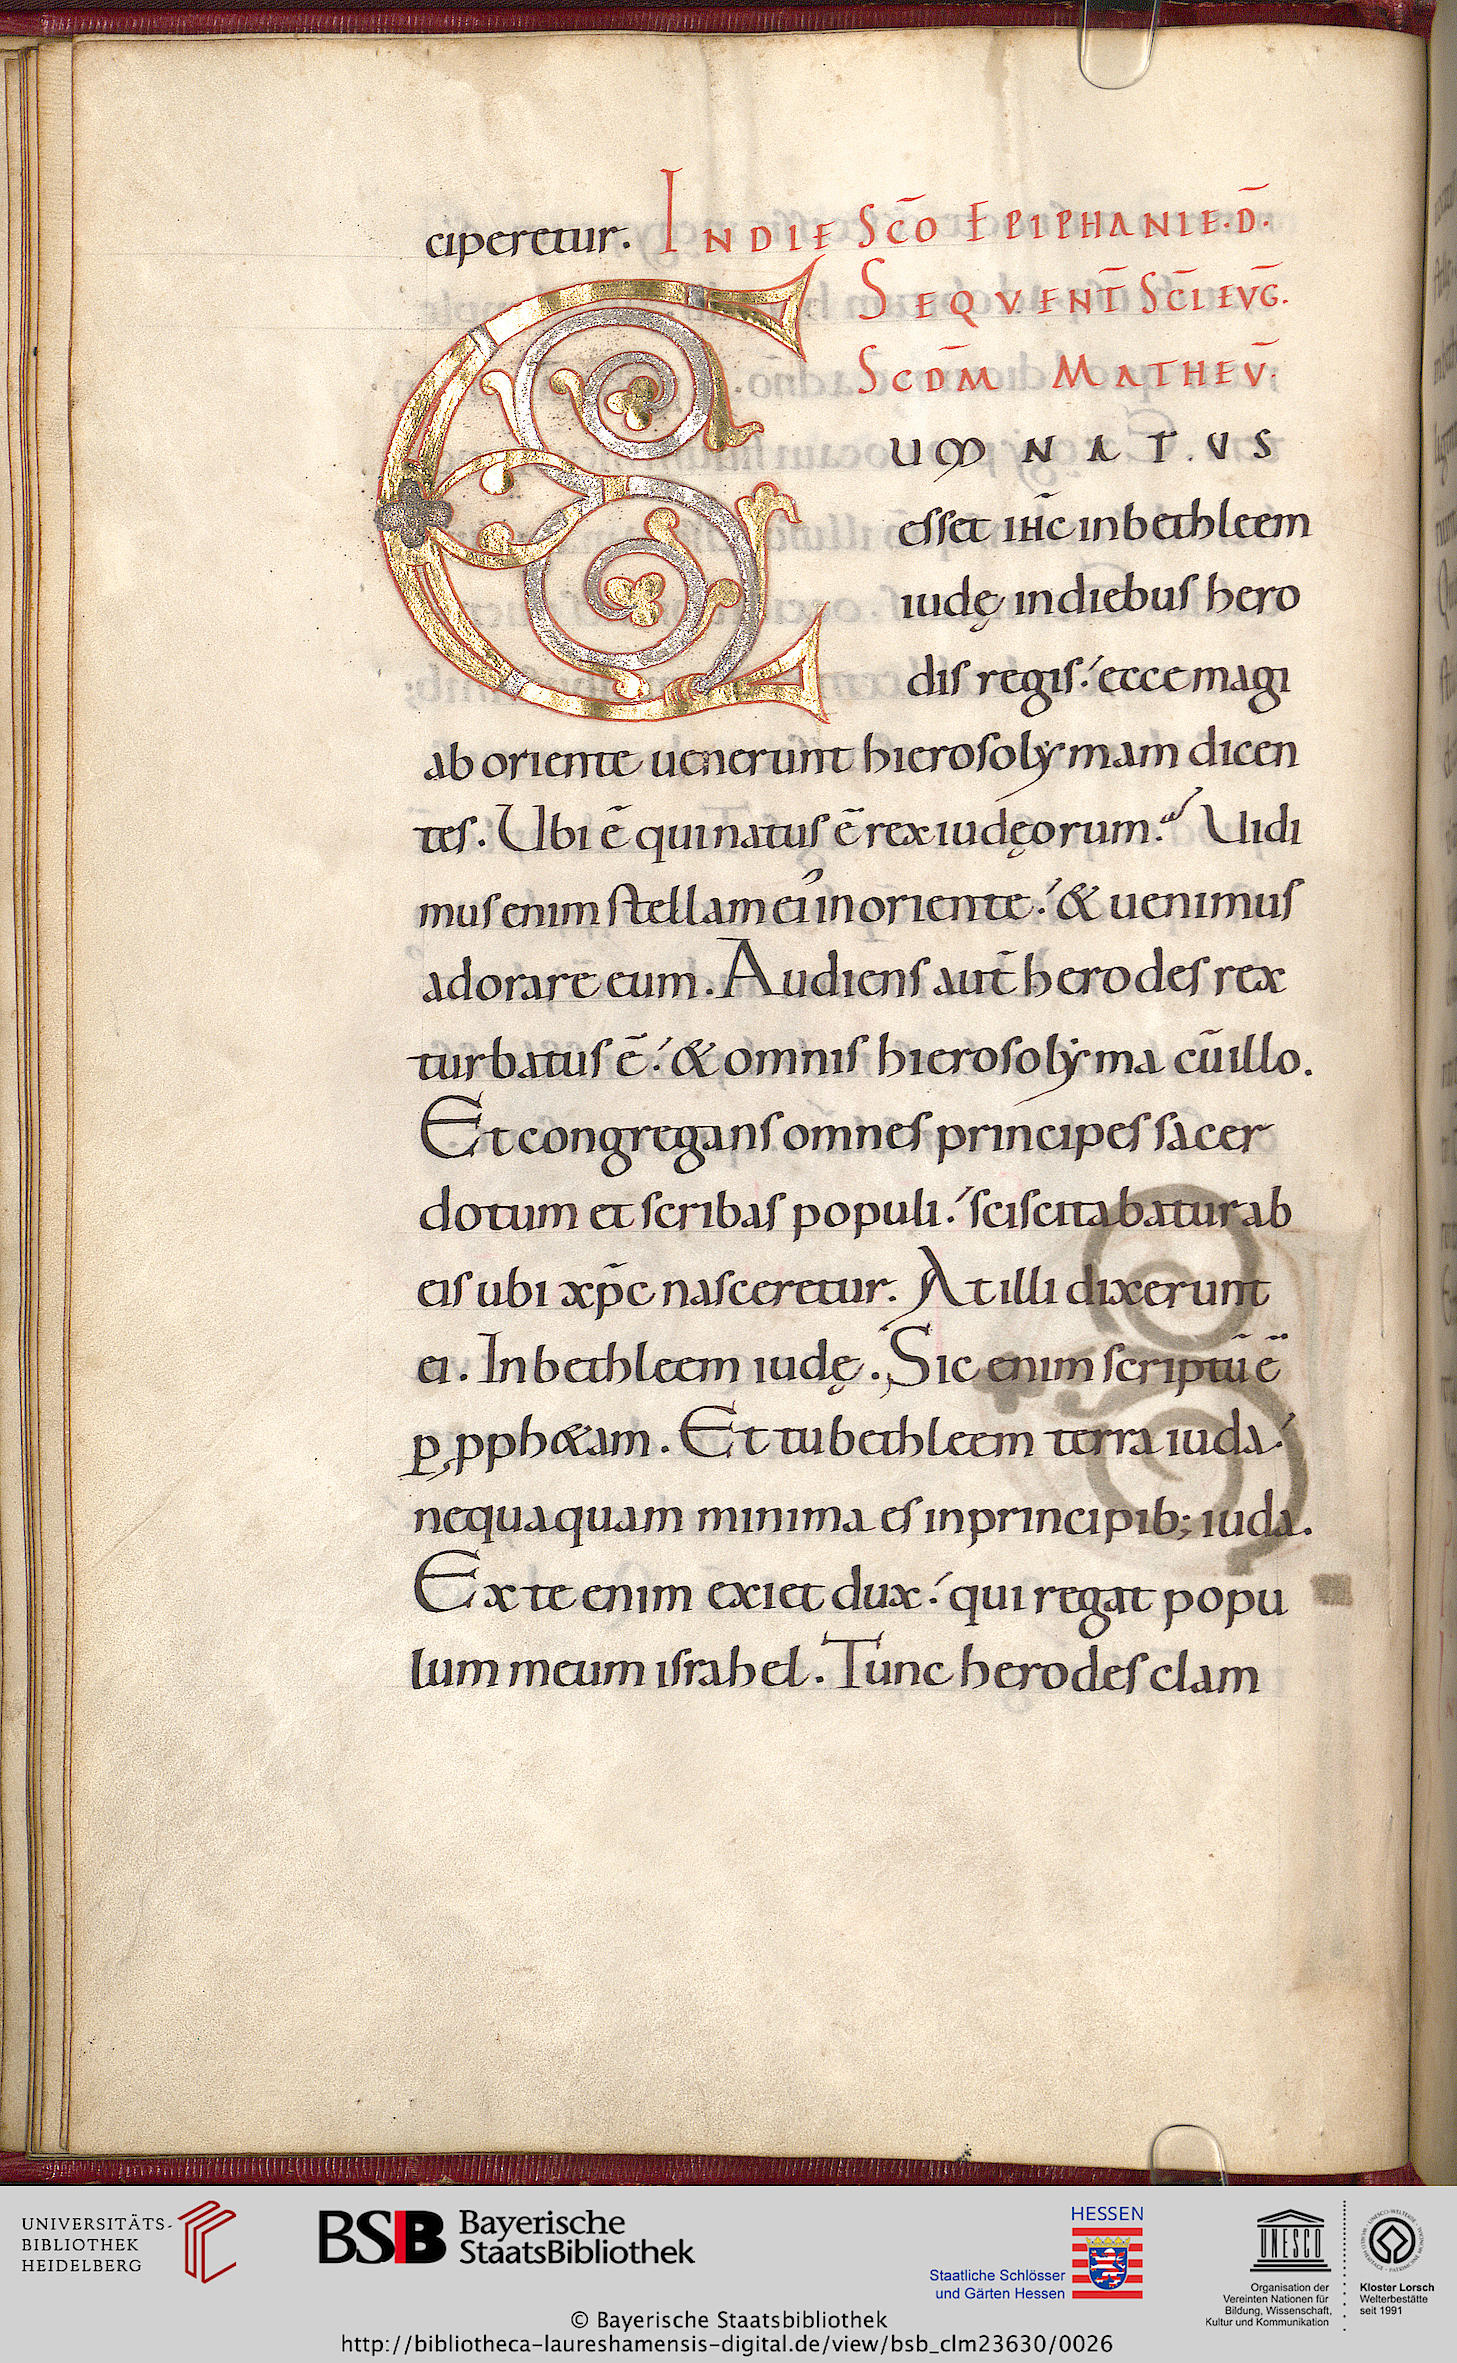 ciperetur. INDIE SC̄O EPIPHANIE.D̄.
SEQVENT̄ SC̄I EVḠ.
SCD̄M MATHEV̄.
C UM NAT.VS
esset ιħc inbethleem
iudę indiebus hero
dis regis. ecce magi
ab oriente uenerunt hierosolẏmam dicen
tes. Ubi ē qui natus ē rex iudęorum. Uidi
mus enim stellam eius in oriente. & uenimus
adorare eum. Audiens aut̄ herodes rex
turbatus ē. & omnis hierosolẏma cū illo.
Et congregans omnes principes sacer
dotum et scribas populi. sciscitabatur ab
eis ubi xp̄c nasceretur. At illi dixerunt
ei. In bethleem iudę. Sic enim scriptū ē
p̱ pph&am. Et tu bethleem terra iuda.
nequaquam minima es in principib; iuda.
Ex te enim exiet dux. qui regat popu
lum meum israhel. Tunc herodes clam
UNIVERSITÄTS-
BIBLIOTHEK
HEIDELBERG
BSB Bayerische
StaatsBibliothek
HESSEN
Staatliche Schlösser
und Gärten Hessen
UNESCO
Organisation der
Vereinten Nationen für
Bildung, Wissenschaft,
Kultur und Kommunikation
Kloster Lorsch
Welterbestätte
seit 1991
© Bayerische Staatsbibliothek
http://bibliotheca-laureshamensis-digital.de/view/bsb_clm23630/0026